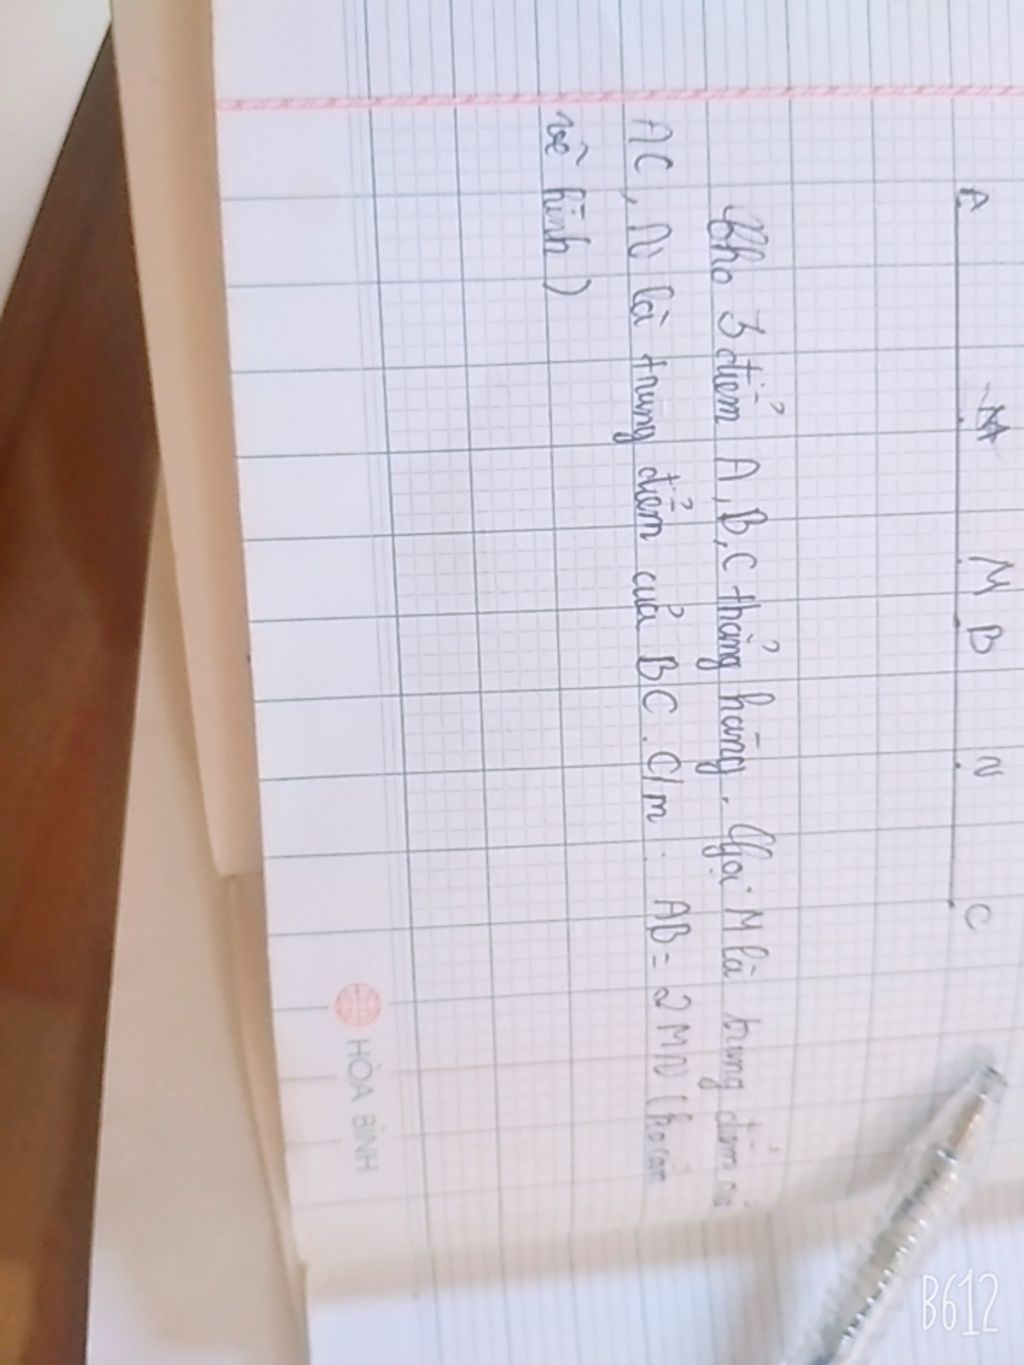 A M M B N C
Cho 3 điểm A, B, C thẳng hàng. Gọi M là trung điểm của
AC, N là trung điểm của BC. C/m: AB = 2 MN (hoàn
vẽ hình)
HÒA BÌNH
B612